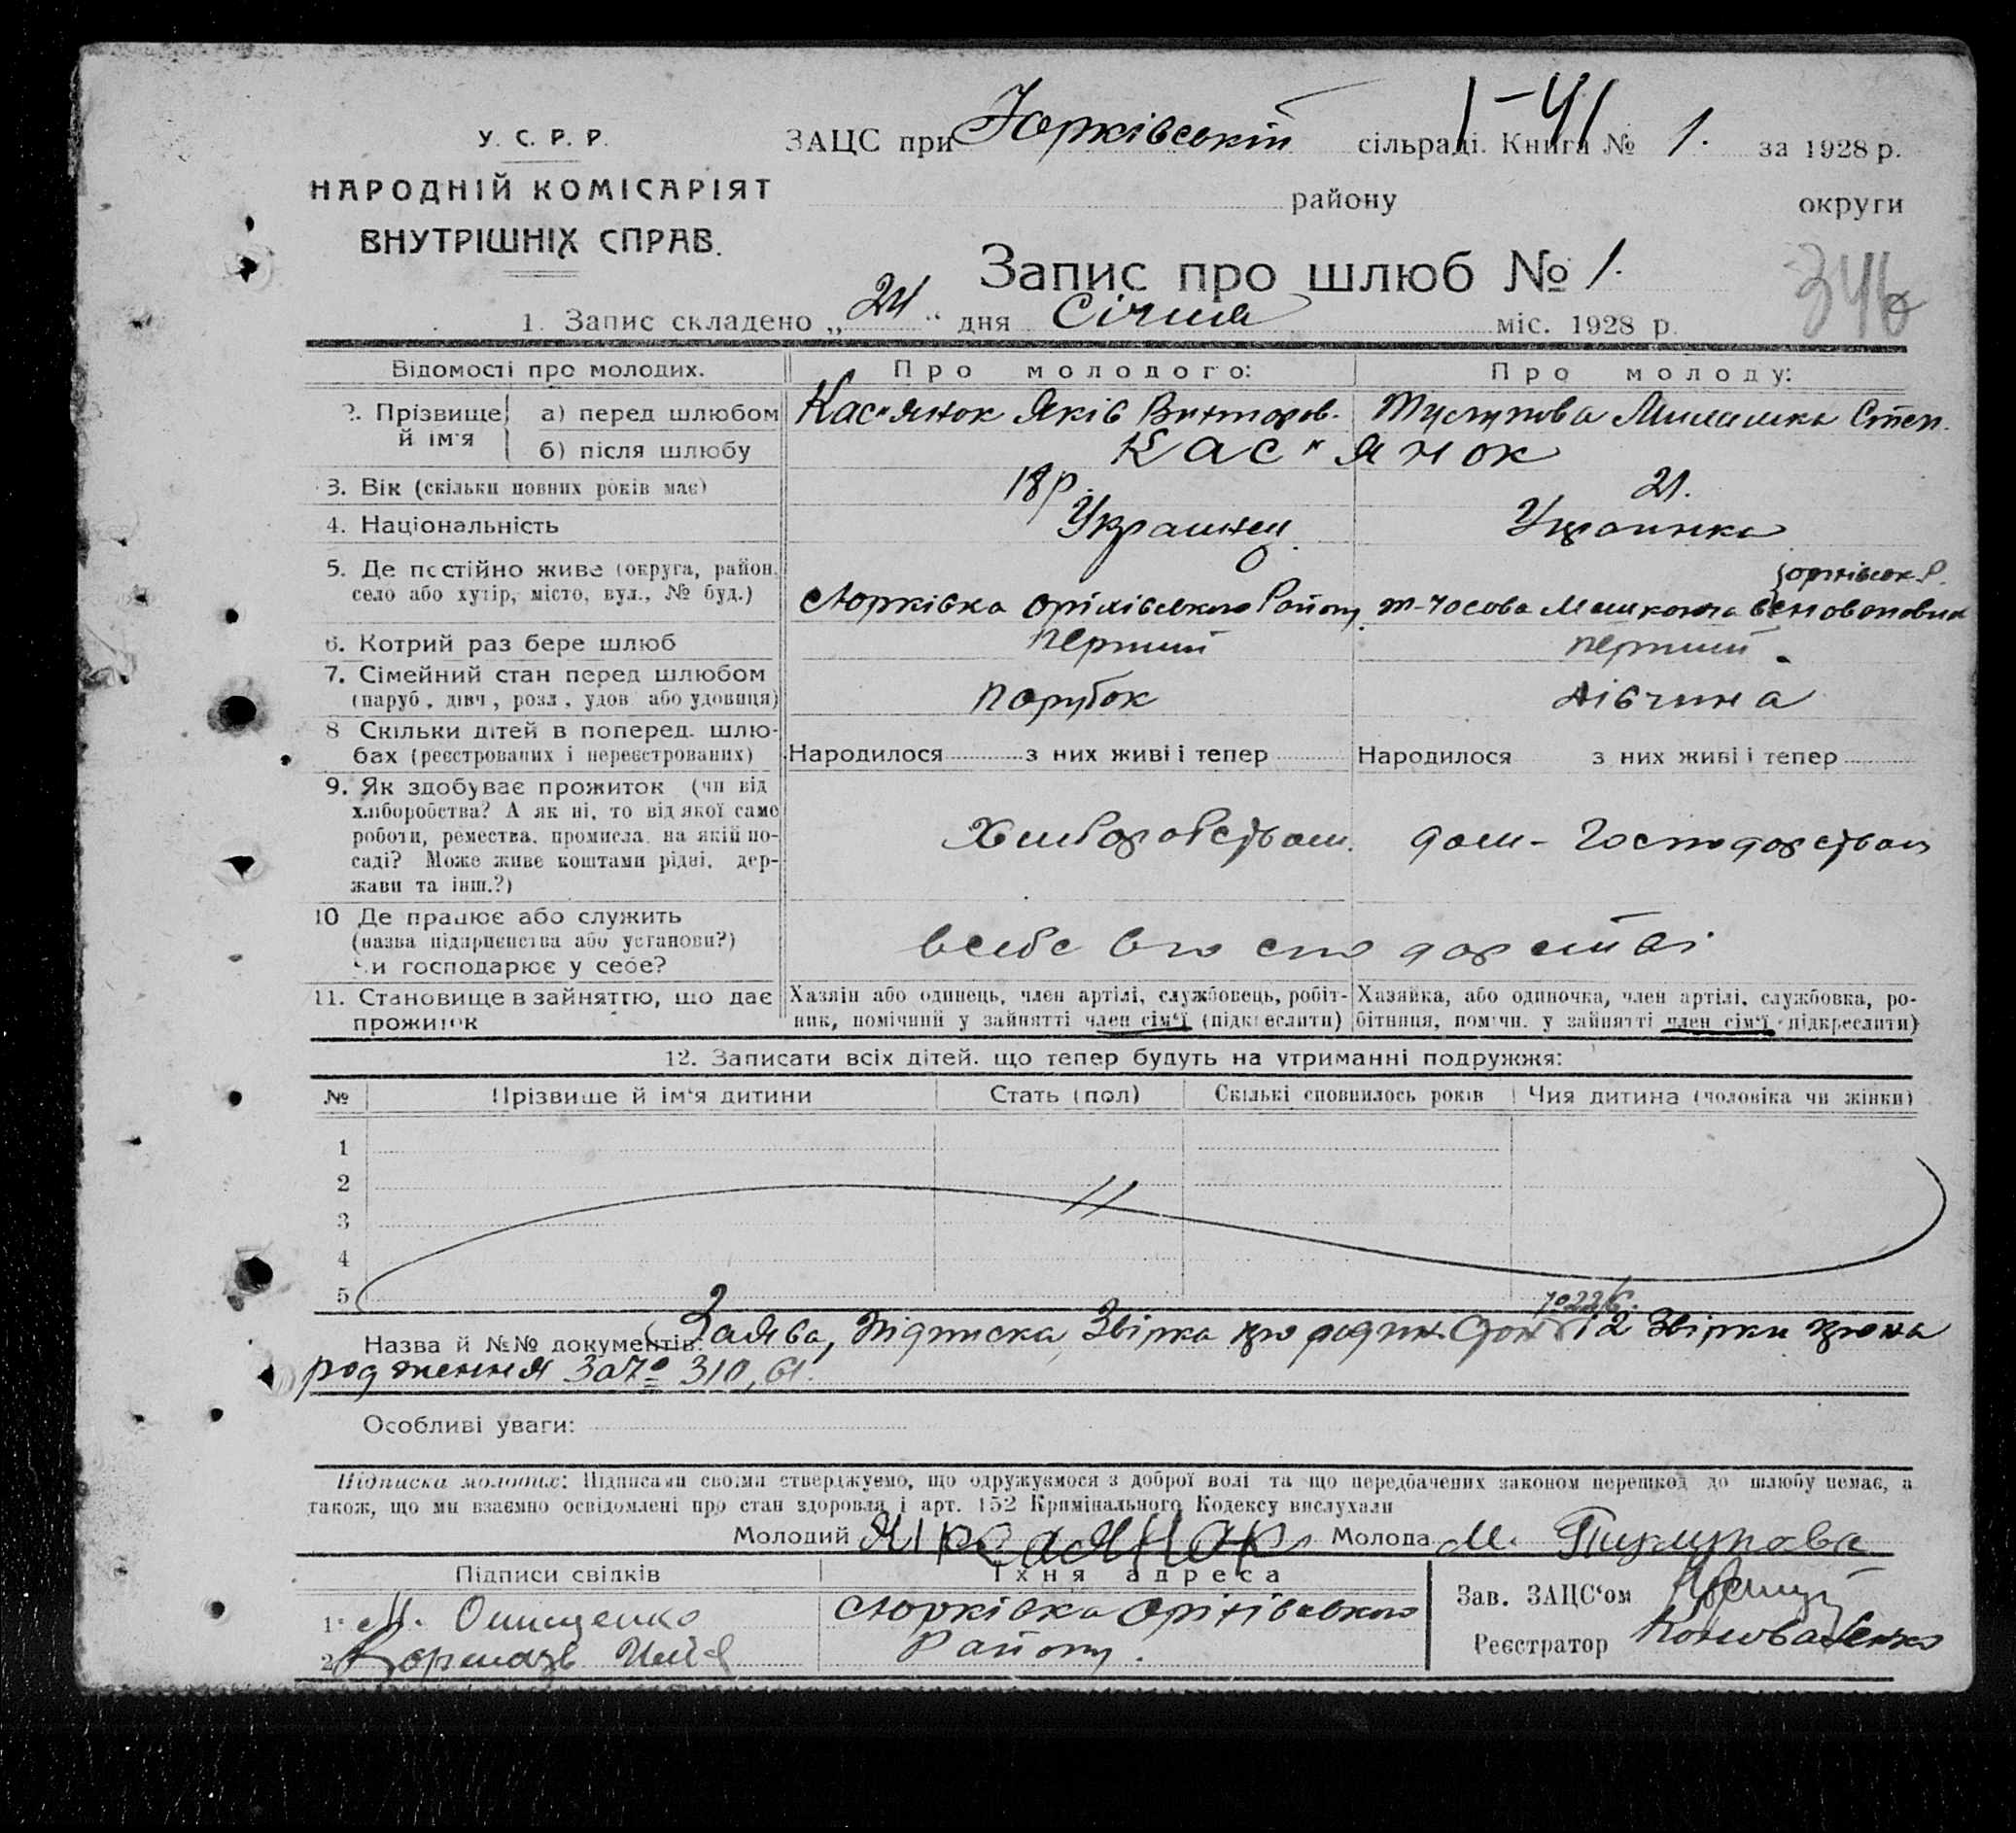 У. С. Р. Р.
НАРОДНІЙ КОМІСАРІЯТ
ВНУТРІШНІХ СПРАВ.
1-41
ЗАЦС при Юрківській сільраді. Книга № 1. за 1928 р.
району округи
Запис про шлюб № 1.
346
1. Запис складено „21“ дня Січня міс. 1928 р.
Відомості про молодих. Про молодого: Про молоду:
2. Прізвище й ім'я
а) перед шлюбом Кас"янок Яків Викторов. Степ.
б) після шлюбу Кас"янок
3. Вік (скільки повних років має) 18 р. 21.
4. Національність Украинец Украинка
5. Де постійно живе (округа, район, село або хутір, місто, вул., № буд.)
с Юрківка Оріхівського Району
6. Котрий раз бере шлюб перший перший
7. Сімейний стан перед шлюбом парубок дівчина
(паруб., дівч., розл., удов. або удовиця)
8 Скільки дітей в поперед. шлюбах (реєстрованих і нереєстрованих)
Народилося з них живі і тепер Народилося з них живі і тепер
9. Як здобуває прожиток (чи від
хліборобства? А як ні, то від якої само
роботи, ремества, промисла, на якій по-
саді? Може живе коштами рідні, дер-
жави та інш.?)
Хліборобством. дом-Господарством
10 Де працює або служить
(назва підприємства або установи?)
Чи господарює у себе?
11. Становище в зайняттю, що дає
прожиток
Хазяін або одинець, член артілі, службовець, робіт-
ник, помічний у зайнятті член сім'ї (підкреслити)
Хазяйка, або одиночка, член артілі, службовка, ро-
бітниця, помічн. у зайнятті член сім'ї (підкреслити)
12. Записати всіх дітей, що тепер будуть на утриманні подружжя:
№ Прізвище й ім'я дитини Стать (пол) Скількі сповнилось років Чия дитина (чоловіка чи жінки)
1
2
3
4
5
Назва й №№ документів: Заява, Підписка, Звірка про родин і 2 Звірки про на
родження за № 310, 61.
Особливі уваги:
Підписка молодих: Підписами своіми стверджуємо, що одружуємося з доброї волі та що передбачених законом перешкод до шлюбу немає, а
також, що ми взаємно освідомлені про стан здоровля і арт. 152 Крімінального Кодексу вислухали
Молодий Молода М.
Підписи свідків Їхня адреса
1. М. Онищенко с Юрківка Оріхівського
2. Району.
Зав. ЗАЦС'ом
Реєстратор Коноваленко